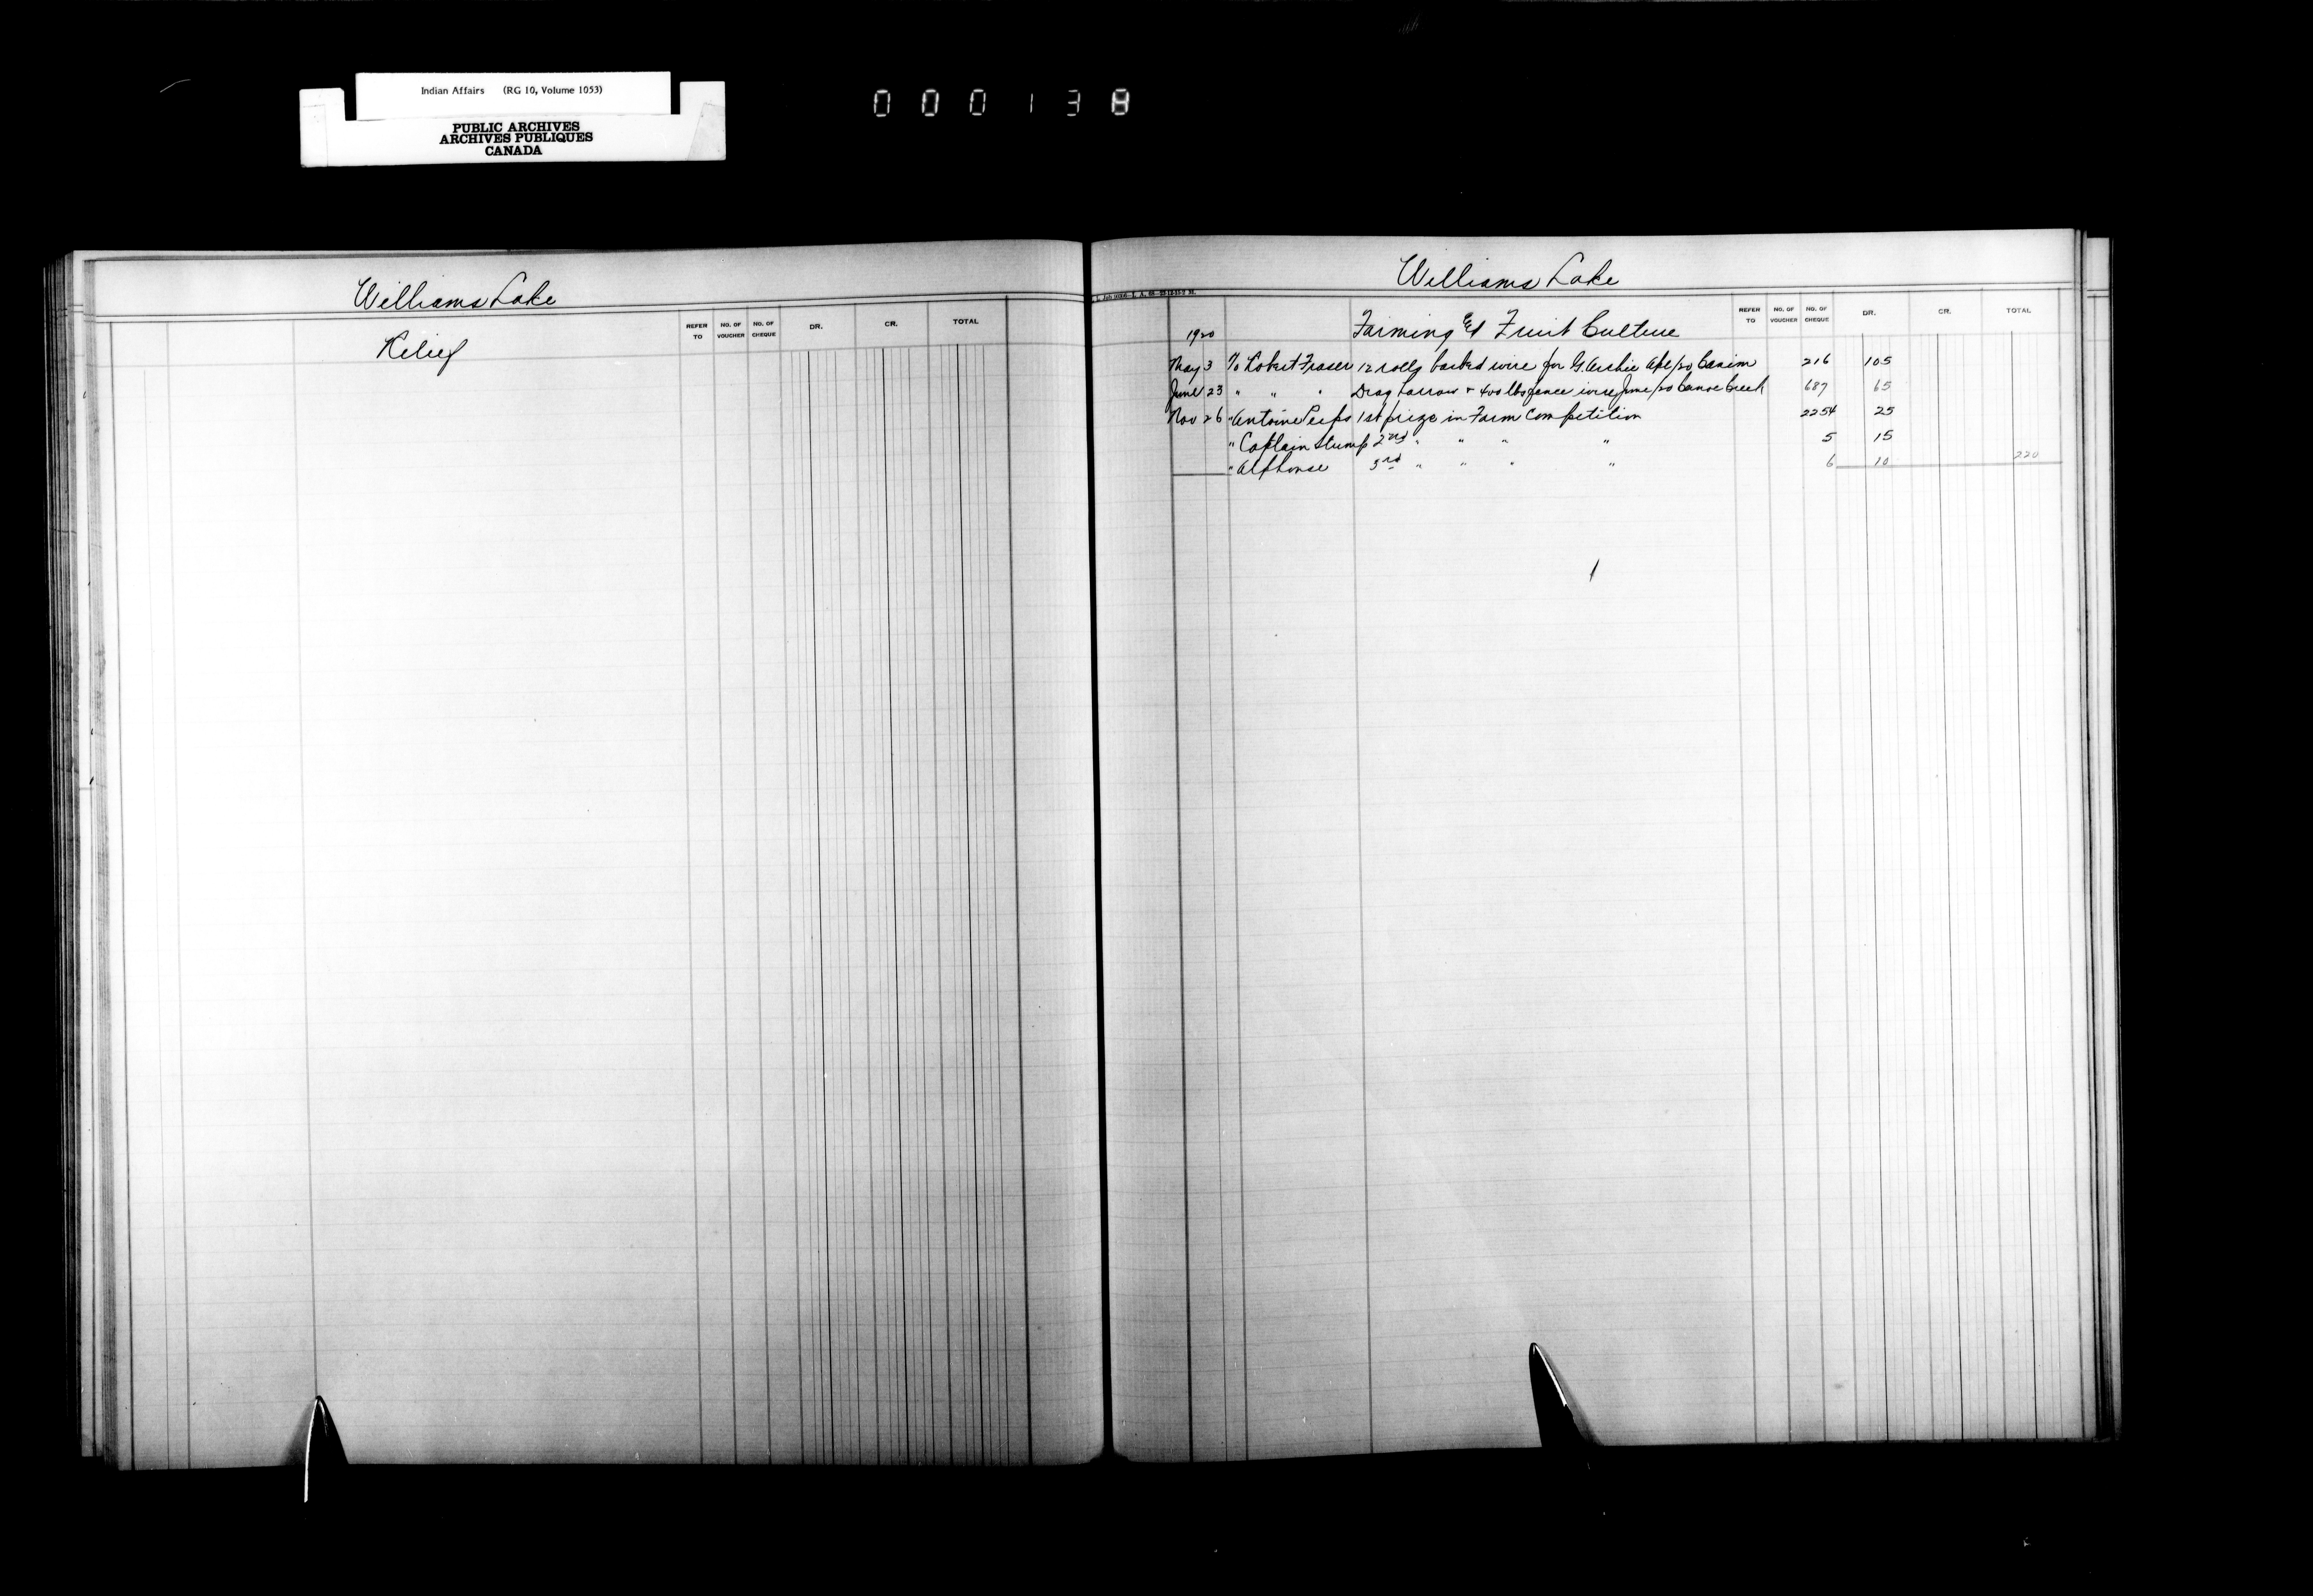 Indian Affairs (RG 10, Volume 1053)
PUBLIC ARCHIVES
ARCHIVES PUBLIQUES
CANADA
000138
Williams Lake
REFER TO NO. OF VOUCHER NO. OF CHEQUE DR. CR. TOTAL
Relief
Williams Lake
REFER TO NO. OF VOUCHER NO. OF CHEQUE DR. CR. TOTAL
1920 Farming & Fruit Culture
May 3 To Robert Fraser 12 rolls barbed wire for G. Archie Apl/20 Canim 216 105
June 23 " " " Drag harrow + 400 lbs fence wire June/20 Canoe Creek 687 65
Nov 26 " Antoine Peeps 1st prize in Farm Competition 2254 25
" Captain Stump 2nd " " " " 5 15
" Alphonse 3rd " " " " 6 10 220